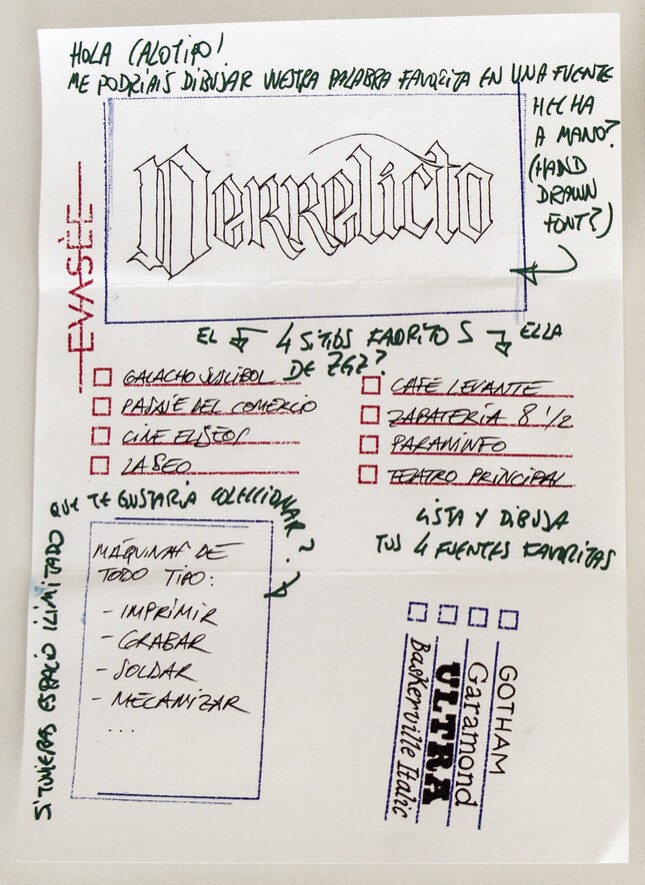 HOLA CALOTIPO!
ME PODRÍAIS DIBUJAR VUESTRA PALABRA FAVORITA EN UNA FUENTE
HECHA
A MANO?
(HAND
DRAWN
FONT?)
Derrelicto
EVASÈE
EL 4 SITIOS FAVORITOS ELLA
DE ZGZ?
GALACHO JUSLIBOL
PASAJE DEL COMERCIO
CINE ELISEOS
LA SEO
CAFÉ LEVANTE
ZAPATERÍA 8 1/2
PARANINFO
TEATRO PRINCIPAL
SI TUVIERAS ESPACIO ILIMITADO QUE TE GUSTARÍA COLECCIONAR?
MÁQUINAS DE
TODO TIPO:
- IMPRIMIR
- GRABAR
- SOLDAR
- MECANIZAR
...
LISTA Y DIBUJA
TUS 4 FUENTES FAVORITAS
GOTHAM
Garamond
ULTRA
Baskerville Italic